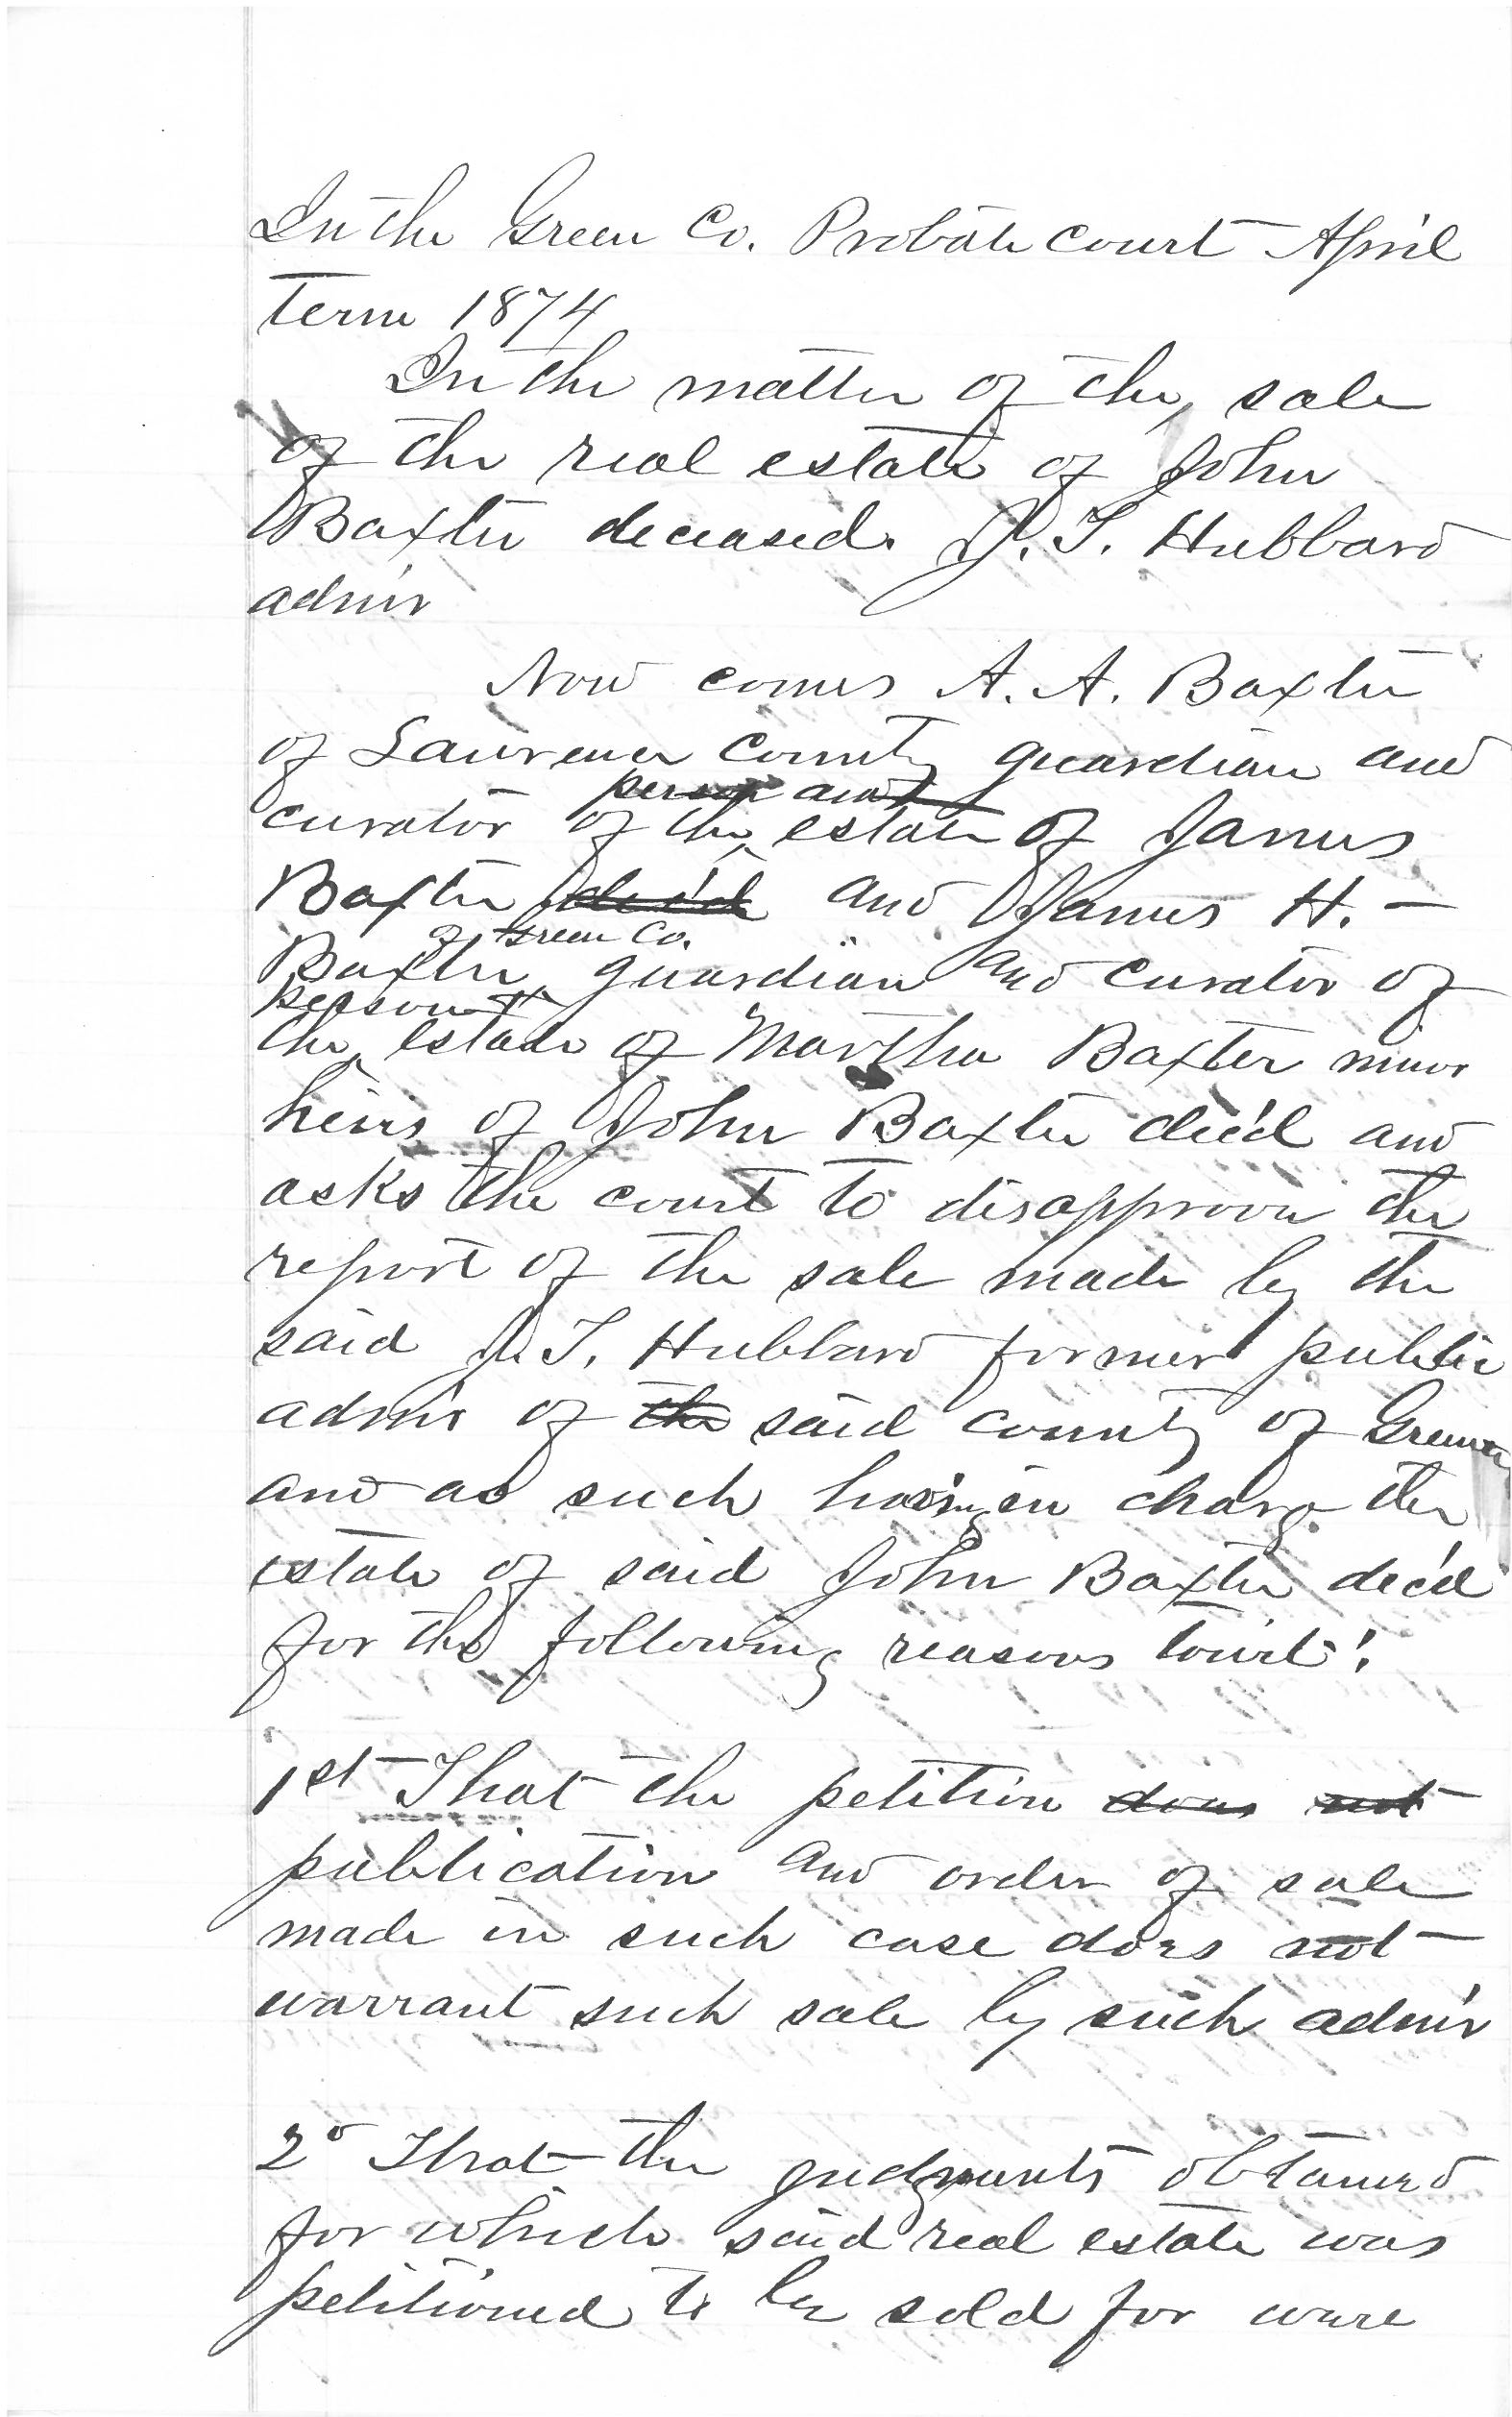 In the Green Co. Probate Court April
Term 1874
In the matter of the sale
of the real estate of John
Baxter deceased. J. T. Hubbard
admr
Now comes A. A. Baxter
of Lawrence County guardian and
person and
curator of the estate of James
Baxter dec'd and James H. -
of Green Co.
Baxter, guardian and curator of
person &
the estate of Martha Baxter minor
heirs of John Baxter dec'd and
asks the court to disapprove the
report of the sale made by the
said J. T. Hubbard former public
admr of the said county of Greene
and as such having in charge the
estate of said John Baxter dec'd
for the following reasons towit:
1st That the petition does not
publication and order of sale
made in such case does not
warrant such sale by such admr
2d That the judgments obtained
for which said real estate was
petitioned to be sold for were